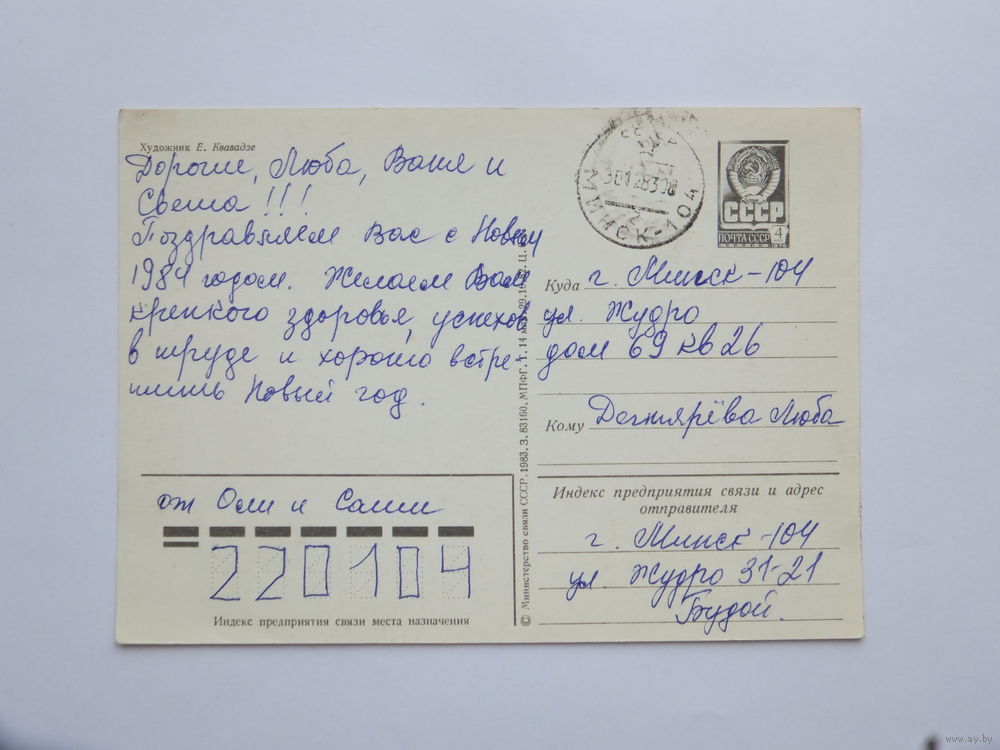 Художник Е. Квавадзе
Дорогие, Люба, Ваня и
Света!!!
Поздравляем Вас с Новым
1984 годом. Желаем Вам
крепкого здоровья, успехов
в труде и хорошо встре-
тить Новый год.
от Оли и Саши
220104
Индекс предприятия связи места назначения
© Министерство связи СССР. 1983. З. 83160. МПФГ. Т. 14
СССР
МИНСК-104
2
СССР
ПОЧТА СССР
4
Куда г. Минск-104
ул. Жудро
дом 69 кв 26
Кому Дегтярёва Люба
Индекс предприятия связи и адрес
отправителя
г. Минск-104
ул. Жудро 31-21
Будой.
www.ay.by